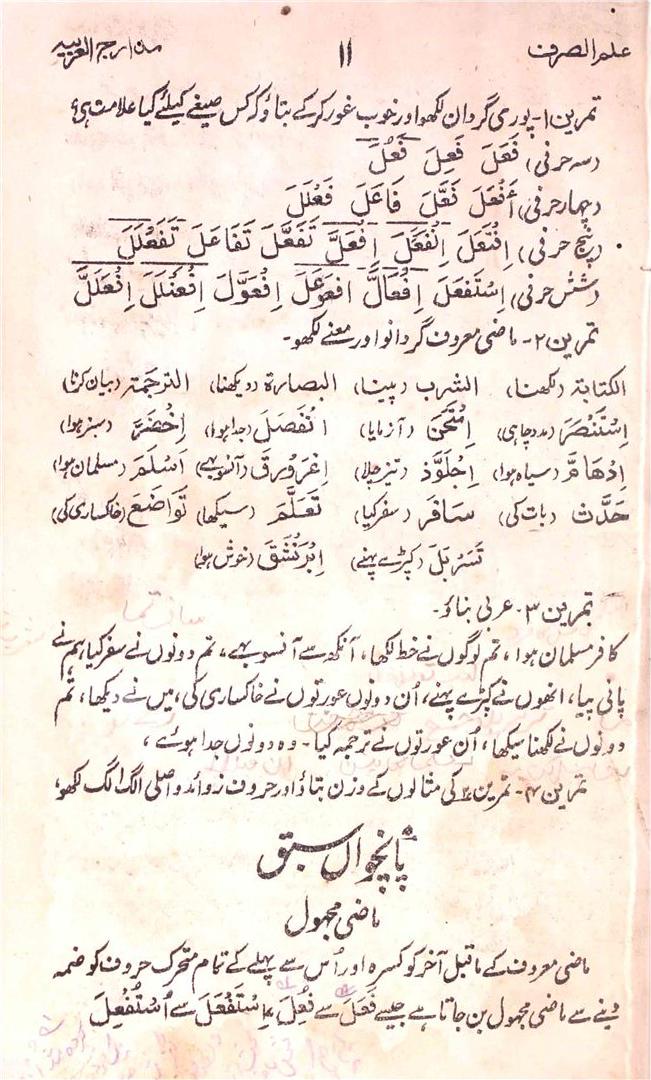 علم الصرف ۱۱ مدارج العربیہ
تمرین ۱- پوری گردان لکھو اور خوب غور کرکے بتاؤ کہ کس صیغے کیلئے کیا علامت ہی؟
(سہ حرفی) فَعَلَ فَعِلَ فَعُلَ
(چہار حرفی) أَفْعَلَ فَعَّلَ فَاعَلَ فَعْلَلَ
(پنج حرفی) اِفْتَعَلَ اِنْفَعَلَ اِفْعَلَّ تَفَعَّلَ تَفَاعَلَ تَفَعْلَلَ
(شش حرفی) اِسْتَفْعَلَ اِفْعَالَّ اِفْعَوْعَلَ اِفْعَوَّلَ اِفْعَنْلَلَ اِفْعَلَلَّ
تمرین ۲- ماضی معروف گردانو اور معنے لکھو-
الکتابۃ (لکھنا) الشرب (پینا) البصارۃ (دیکھنا) الترجمۃ (بیان کرنا)
اِسْتَنْصَرَ (مدد چاہی) اِمْتَحَنَ (آزمایا) اِنْفَصَلَ (جدا ہوا) اِخْضَرَّ (سبز ہوا)
اِدْهَامَّ (سیاہ ہوا) اِجْلَوَّذَ (تیز چلا) اِغْرَوْرَقَ (آنسو بہے) اَسْلَمَ (مسلمان ہوا)
حَدَّثَ (بات کی) سَافَرَ (سفر کیا) تَعَلَّمَ (سیکھا) تَوَاضَعَ (خاکساری کی)
تَسَرْبَلَ (کپڑے پہنے) اِبْرَنْشَقَ (خوش ہوا)
تمرین ۳- عربی بناؤ-
کافر مسلمان ہوا، تم لوگوں نے خط لکھا، آنکھ سے آنسو بہے، تم دونوں نے سفر کیا ہم نے
پانی پیا، انھوں نے کپڑے پہنے، اُن دونوں عورتوں نے خاکساری کی، میں نے دیکھا، تم
دونوں نے لکھنا سیکھا، اُن عورتوں نے ترجمہ کیا- وہ دونوں جدا ہوئے،
تمرین ۴- تمرین ۲ کی مثالوں کے وزن بتاؤ اور حروف زوائد و اصلی الگ الگ لکھو،
پانچواں سبق
ماضی مجہول
ماضی معروف کے ماقبل آخر کو کسرہ اور اُس سے پہلے کے تمام متحرک حروف کو ضمہ
دینے سے ماضی مجہول بن جاتا ہے جیسے فَعَلَ سے فُعِلَ، اِسْتَفْعَلَ سے اُسْتُفْعِلَ